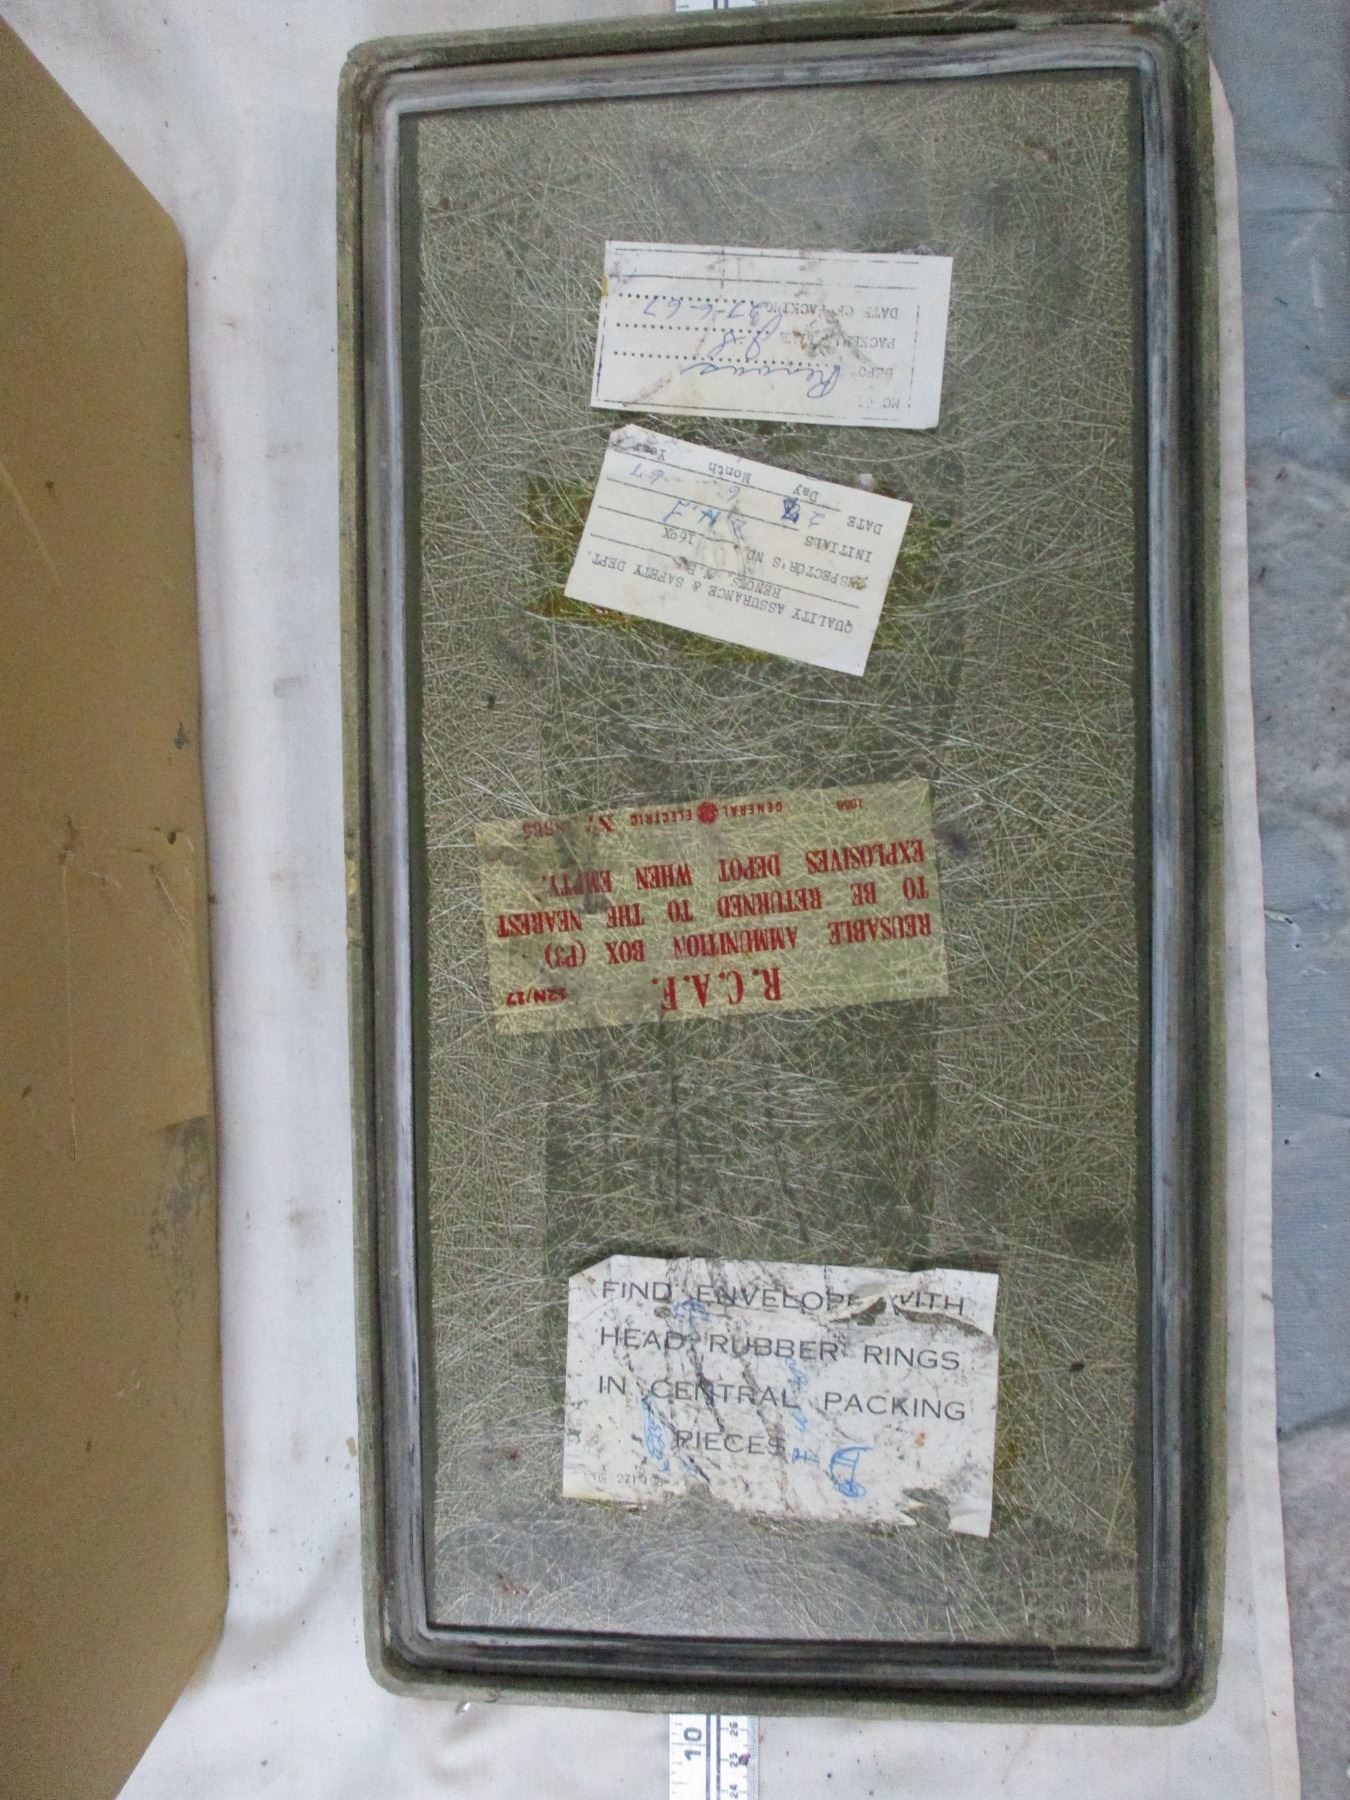 DEPOT Renous
PACKER'S
DATE OF PACKING 27-6-67
QUALITY ASSURANCE & SAFETY DEPT.
RENOUS, N.B.
INSPECTOR'S NO. 169X
INITIALS
DATE 27 6 67
Day Month Year
12N/17
R.C.A.F.
REUSABLE AMMUNITION BOX (P3)
TO BE RETURNED TO THE NEAREST
EXPLOSIVES DEPOT WHEN EMPTY.
1956 GENERAL ELECTRIC
FIND ENVELOPE WITH
HEAD RUBBER RINGS
IN CENTRAL PACKING
PIECES
10
26
25
24